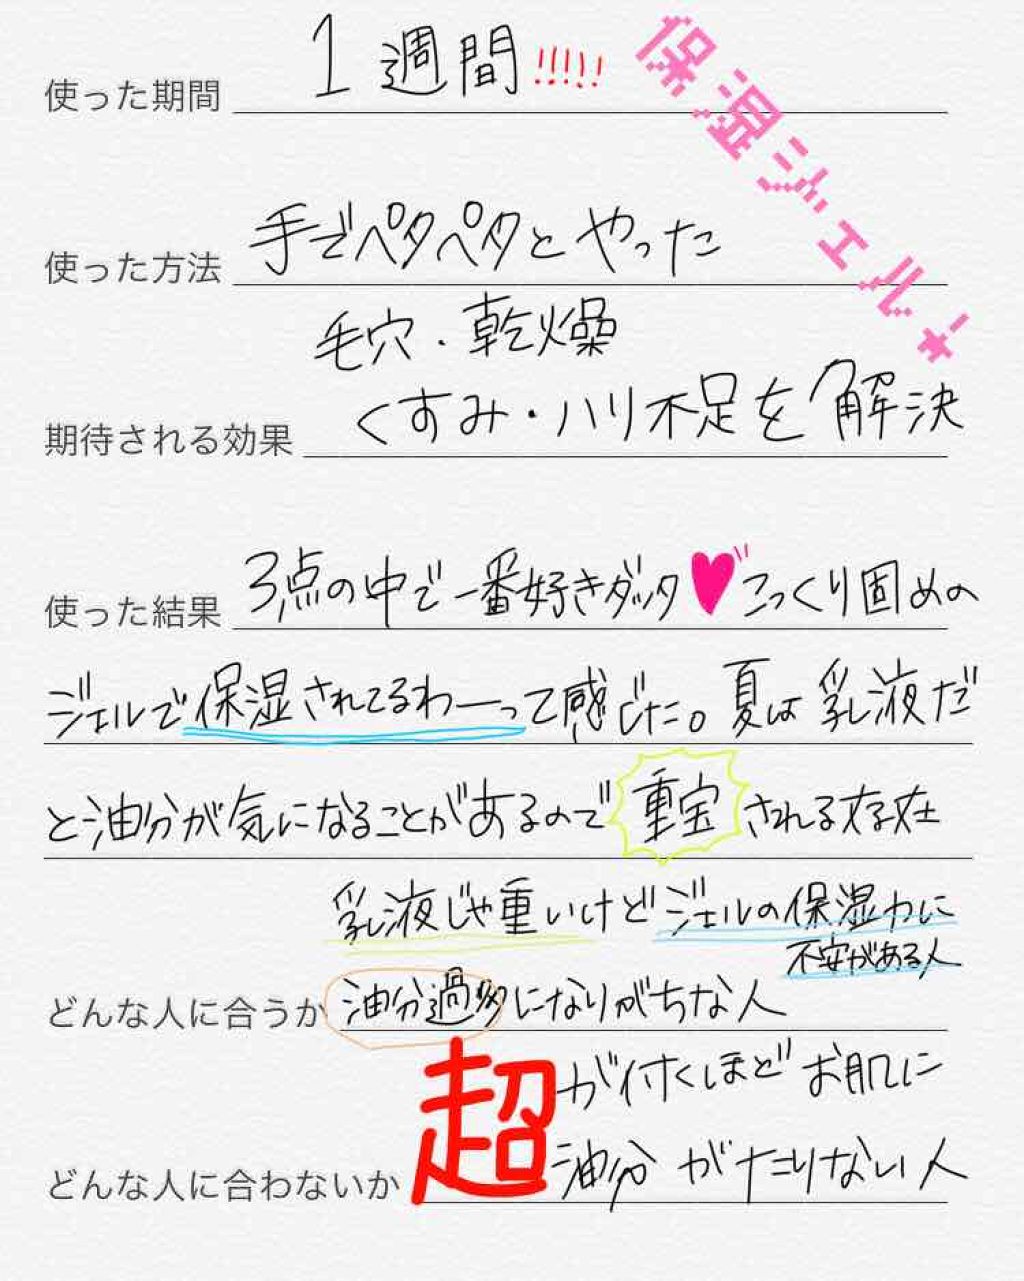 保湿ジェル!
使った期間 1週間!!!!!
使った方法 手でペタペタとやった
毛穴・乾燥
期待される効果 くすみ・ハリ不足を解決
使った結果 3点の中で一番好きダッタ♥こっくり固めの
ジェルで保湿されてるわーって感じた。夏は乳液だ
と油分が気になることがあるので重宝される存在
乳液じゃ重いけどジェルの保湿力に
不安がある人
どんな人に合うか 油分過多になりがちな人
超が付くほどお肌に
どんな人に合わないか 油分がたりない人